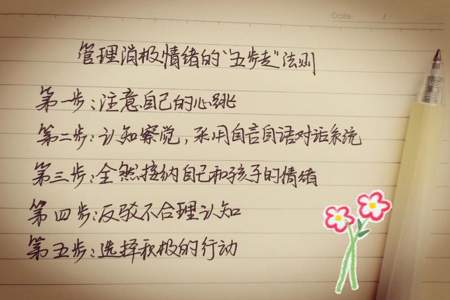 管理消极情绪的“五步走”法则
第一步：注意自己的心跳
第二步：认知察觉，采用自言自语对话系统
第三步：全然接纳自己和孩子的情绪
第四步：反驳不合理认知
第五步：选择积极的行动